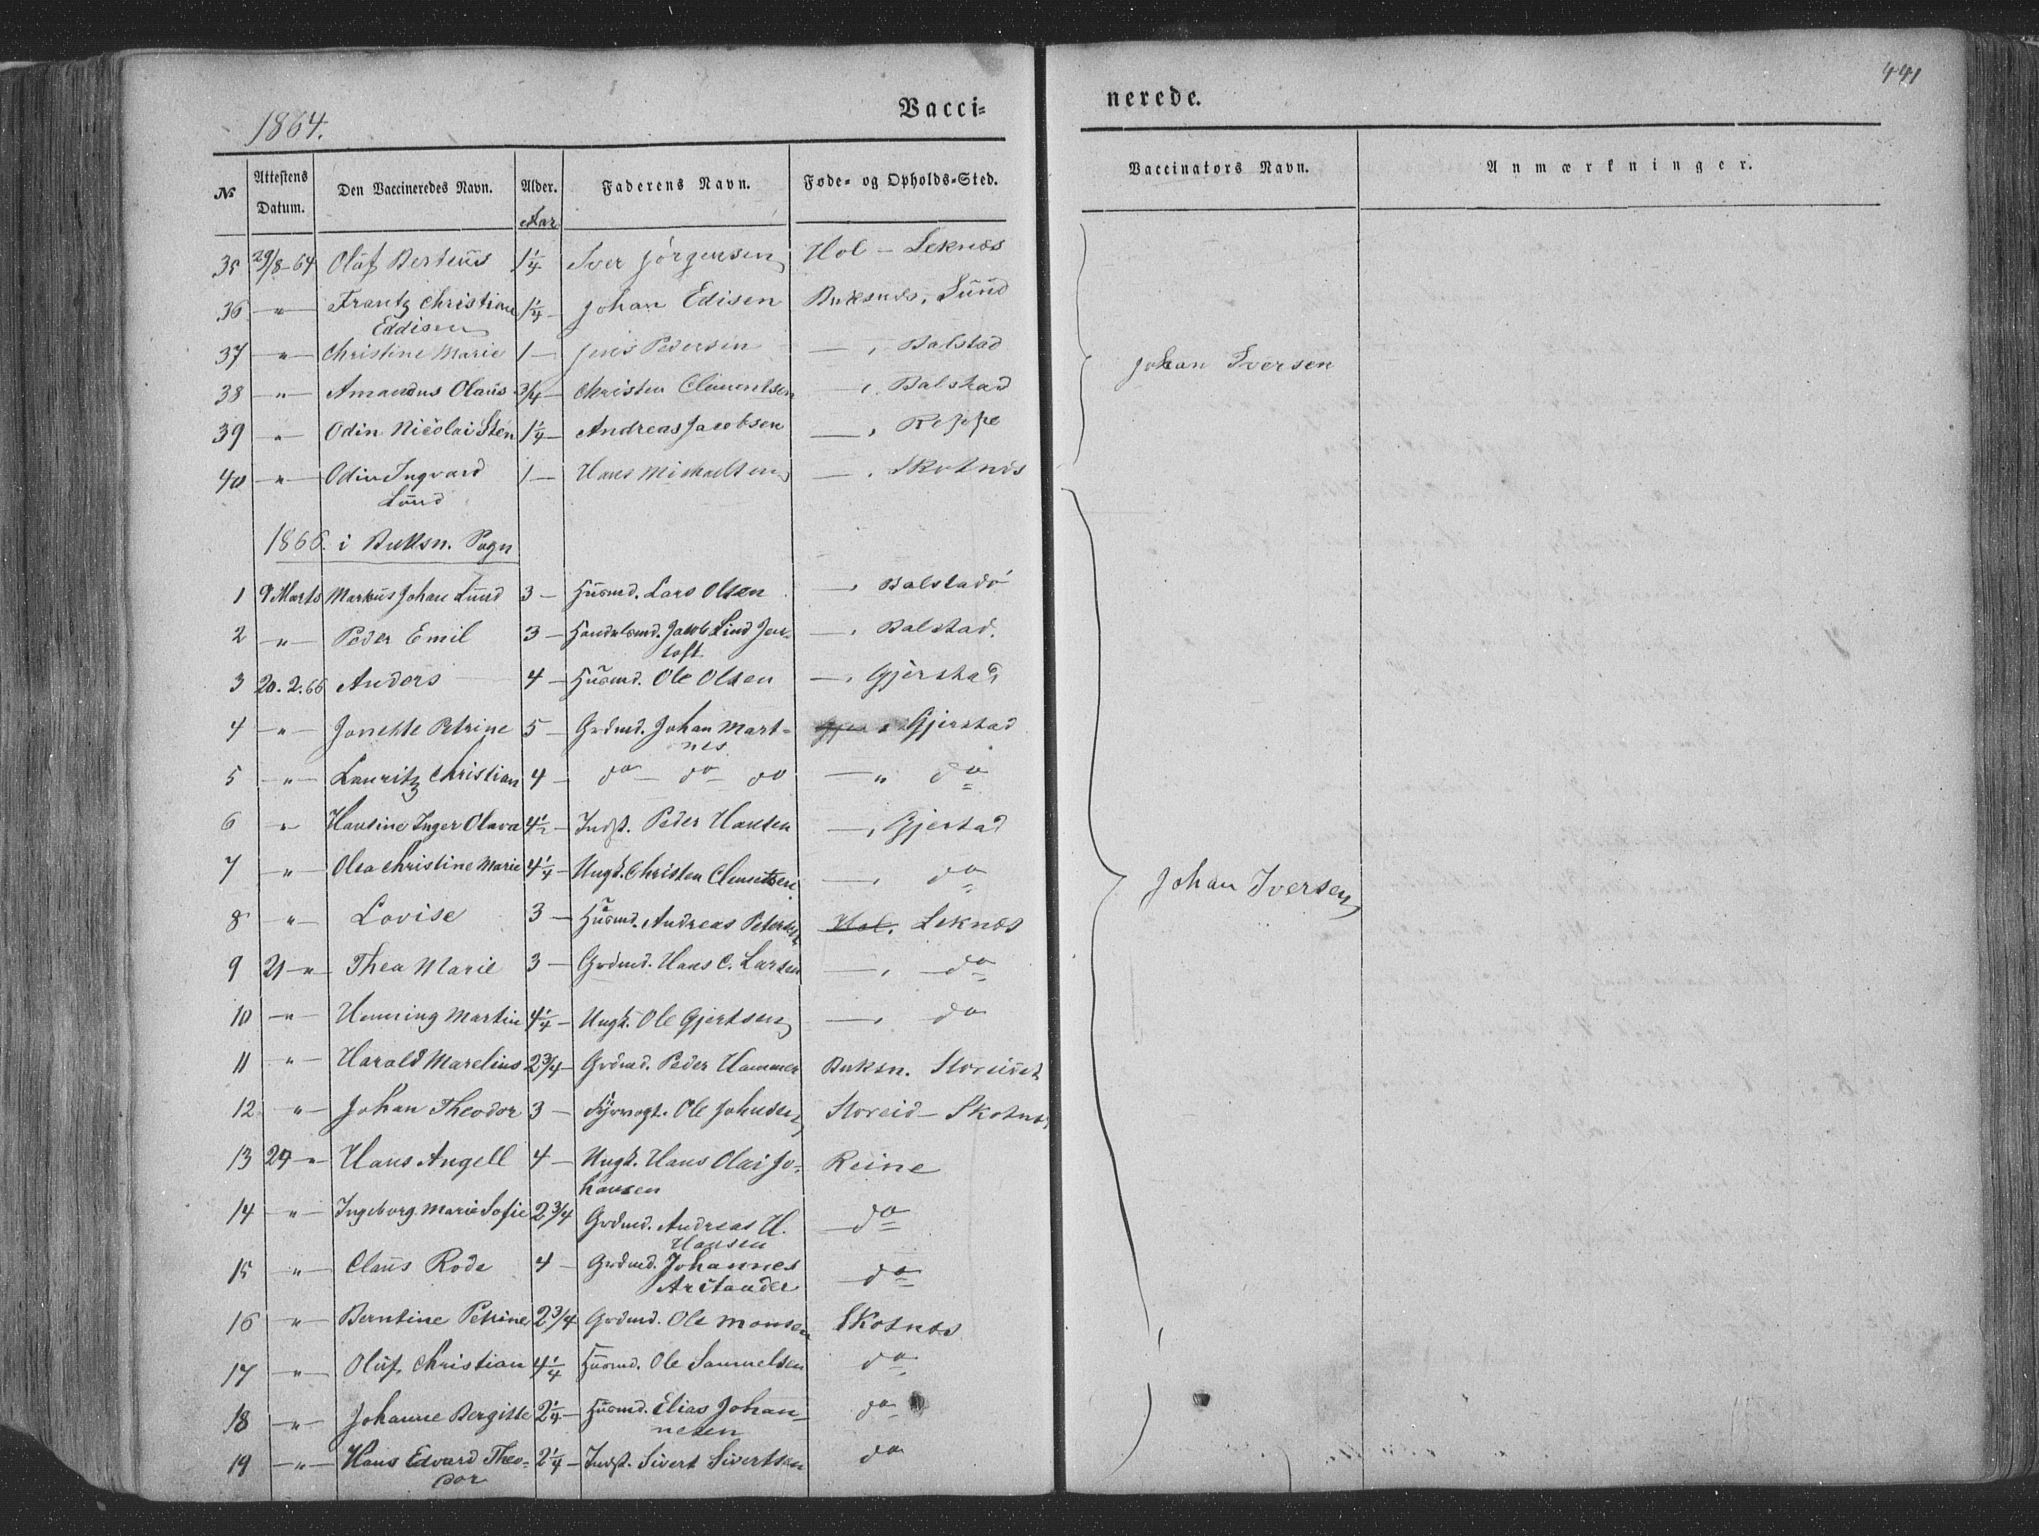 441
1864.
Vacci-
nerede.
No
Attestens Datum.
Den Vaccineredes Navn.
Alder.
Faderens Navn.
Føde- og Opholds-Sted.
Vaccinators Navn.
Anmærkninger.
Aar
35 29/8-64 Oluf Berteus 1 1/4 Iver Jörgensen Hol - Leknæs
36 " Frantz Christian 1 1/4 Johan Edisen Buksnæs, Sund
Eddisen
37 " Christine Marie 1 Jens Pedersen — , Balstad
38 " Amandus Olaus 3/4 Christen Clementsen — , Balstad
39 " Odin Nicolai Sten 1 1/4 Andreas Jacobsen — , Reppe
40 " Odin Ingvard 1 Hans Michaelsen — , Skotnes
Lund
Johan Iversen
1866. i Buksn. Sogn
1 9 Marts Markus Johan Lund 3 Husmd. Lars Olsen — , Balstadö
2 " Peder Emil 3 Handelsmd. Jacob Lind Jen- — , Balstad.
toft
3 20.2.66 Anders 4 Husmd. Ole Olsen — , Gjerstad
4 " Jonette Petrine 5 Grdmd. Johan Mart- Gjer , Gjerstad
nes
5 " Lauritz Christian 4 do do do — " do
6 " Hansine Inger Olava 4 1/2 Indst. Peder Hansen — , Gjerstad
7 " Olea Christine Marie 4 1/4 Ungk. Christen Clementsen — , do
8 " Lovise 3 Husmd. Andreas Petersen Hol. Leknæs
9 21 " Thea Marie 3 Grdmd. Hans C. Larsen — , do
10 " Henning Martin 4 1/4 Ungk. Ole Gjertsen — , do
11 " Harald Marelius 2 3/4 Grdmd. Peder Hammer Buksn.
12 " Johan Theodor 3 Fyrvogt. Ole Johnsen Storeid - Skotnes
13 24 " Hans Angell 4 Ungk. Hans Olai Jo- Reine
hansen
14 " Ingeborg Marie Sofie 2 3/4 Grdmd. Andreas H. do
Hansen
15 " Claus Rode 4 Grdmd. Johannes do
Arctander
16 " Berntine Petrine 2 3/4 Grdmd. Ole Monsen Skotnes
17 " Oluf Christian 4 1/4 Husmd. Ole Samuelsen do
18 " Johanne Bergitte 2 1/4 Husmd. Elias Johan- do
nesen
19 " Hans Edvard Theo- 2 1/4 Indst. Sivert Sivertsen do
dor
Johan Iversen